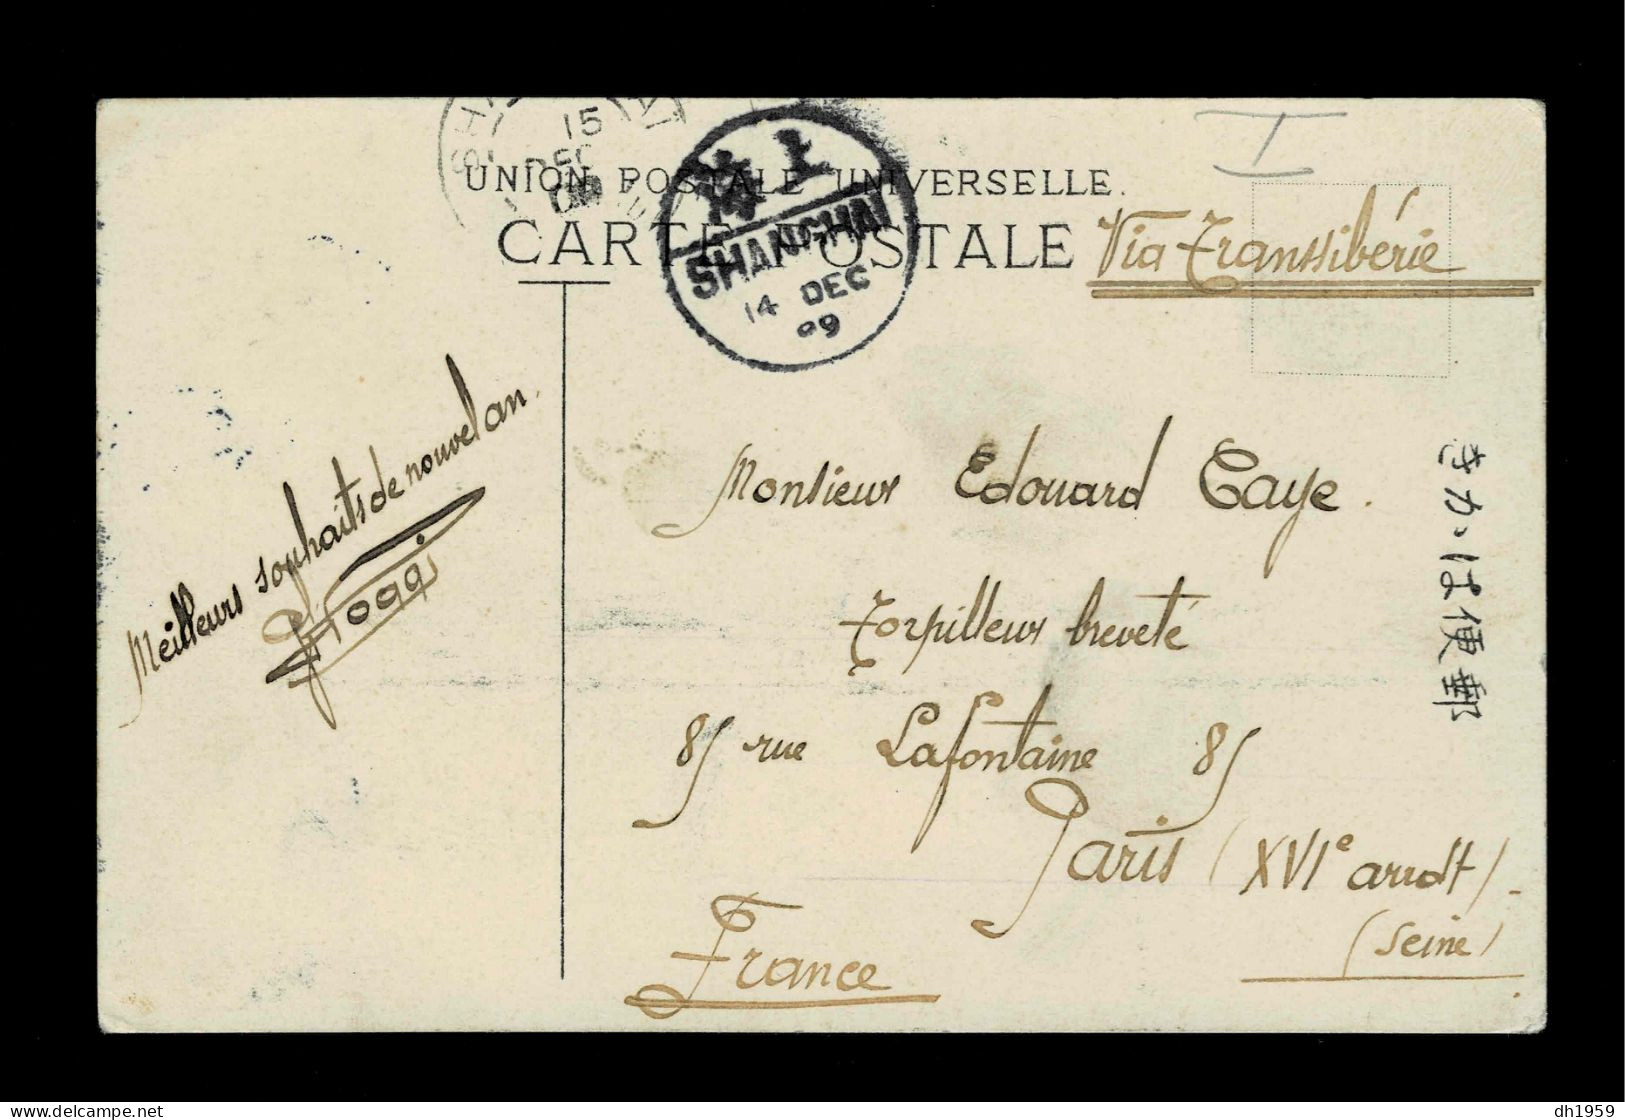 15
DEC
UNION POSTALE UNIVERSELLE.
CARTE POSTALE
海上
SHANGHAI
14 DEC
09
I
Via Transsibérie
Meilleurs souhaits de nouvel an.
Monsieur Edouard Caye.
Torpilleur breveté
85 rue Lafontaine 85
Paris (XVIe arrdt)-
(Seine)
France
郵便はかき
dh1959